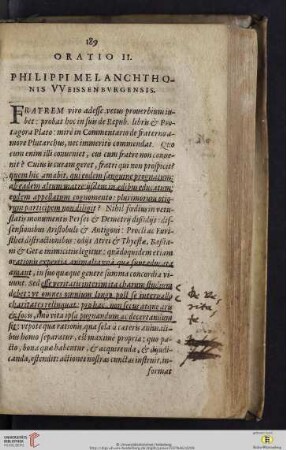 189
ORATIO II.
PHILIPPI MELANCHTHO-
NIS VVEISSENBVRGENSIS.
FRATREM viro adesse vetus proverbium iu-
bet: probat hoc in suis de Repub. libris & Pro-
tagora Plato: mirè in Commentario de fraterno a-
more Plutarchus, nec immeritò commendat. Quo
cum enim illi conveniet, cui cum fratre non conve-
nit? Cuius is curam geret, fratri qui non prospicit?
quem hic amabit, qui eodem sanguine prognatum,
ab eadem alvum matre, ijsdem in ædibus educatum,
eodem appellatum cognomento: plurimorum
participem non diligit? Nihil fœdius in vetu-
statis monumentis Persei & Demetrij dissidijs: dis-
sensionibus Aristobuli & Antigoni: Procli ac Eurysthei
distractionibus: odijs Atrei & Thyestæ, Bassia-
ni & Getæ inimicitijs legitur: quādoquidem etiam
rationis expertia animalia
amant, in suo quæque genere summa concordia vi-
vunt. Sed esse veritati intima charum
debet: ut omnes omnium longo post se intervallo
charitates relinquat: pro hac, non secus atque aris
& focis, imò vita ipsa pugnandum ac decertandum
sit: utpote quæ rationis, qua sola à cæteris animātibus
homo separatur, est maximè propria: quo pa-
cto, bona quæ habentur, & acquirenda, & dijudi-
canda, ostendit: actiones nostras cunctas instruit, in-
format
De Ve-
rita
te
© Universitätsbibliothek Heidelberg